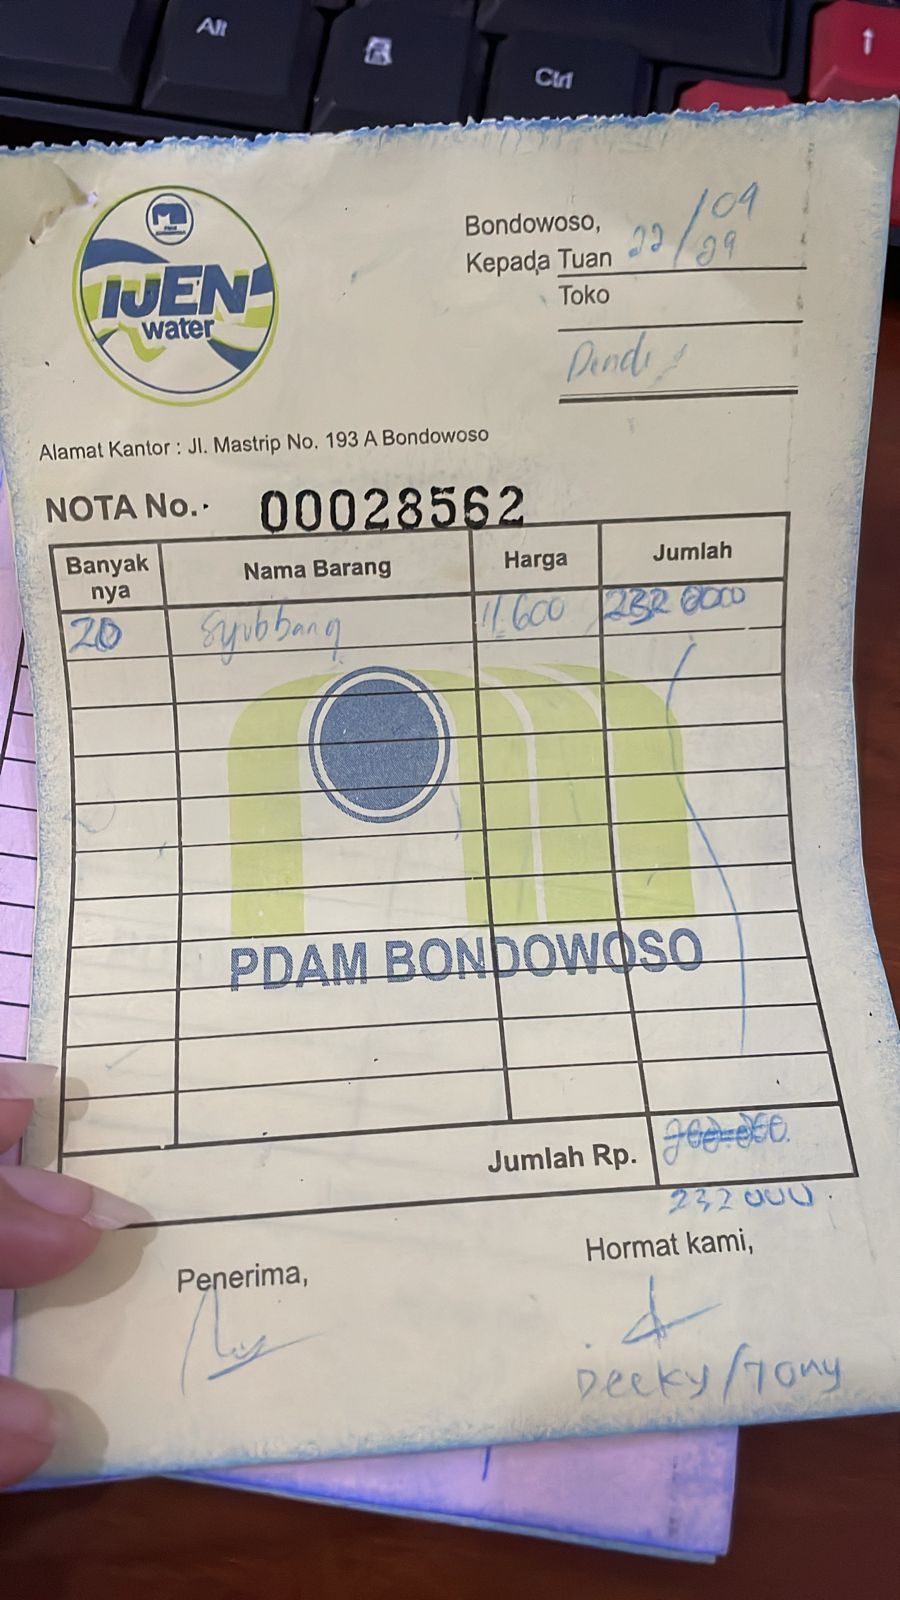 Alt
Ctrl
↑
IJEN
water
Bondowoso, 22/09
Kepada Tuan 29
Toko
Dendi
Alamat Kantor : Jl. Mastrip No. 193 A Bondowoso
NOTA No. 00028562
Banyak nya Nama Barang Harga Jumlah
20 Syubbang 11.600 232 0000
PDAM BONDOWOSO
Jumlah Rp.
232 000
Penerima, Hormat kami,
Deeky/Tony